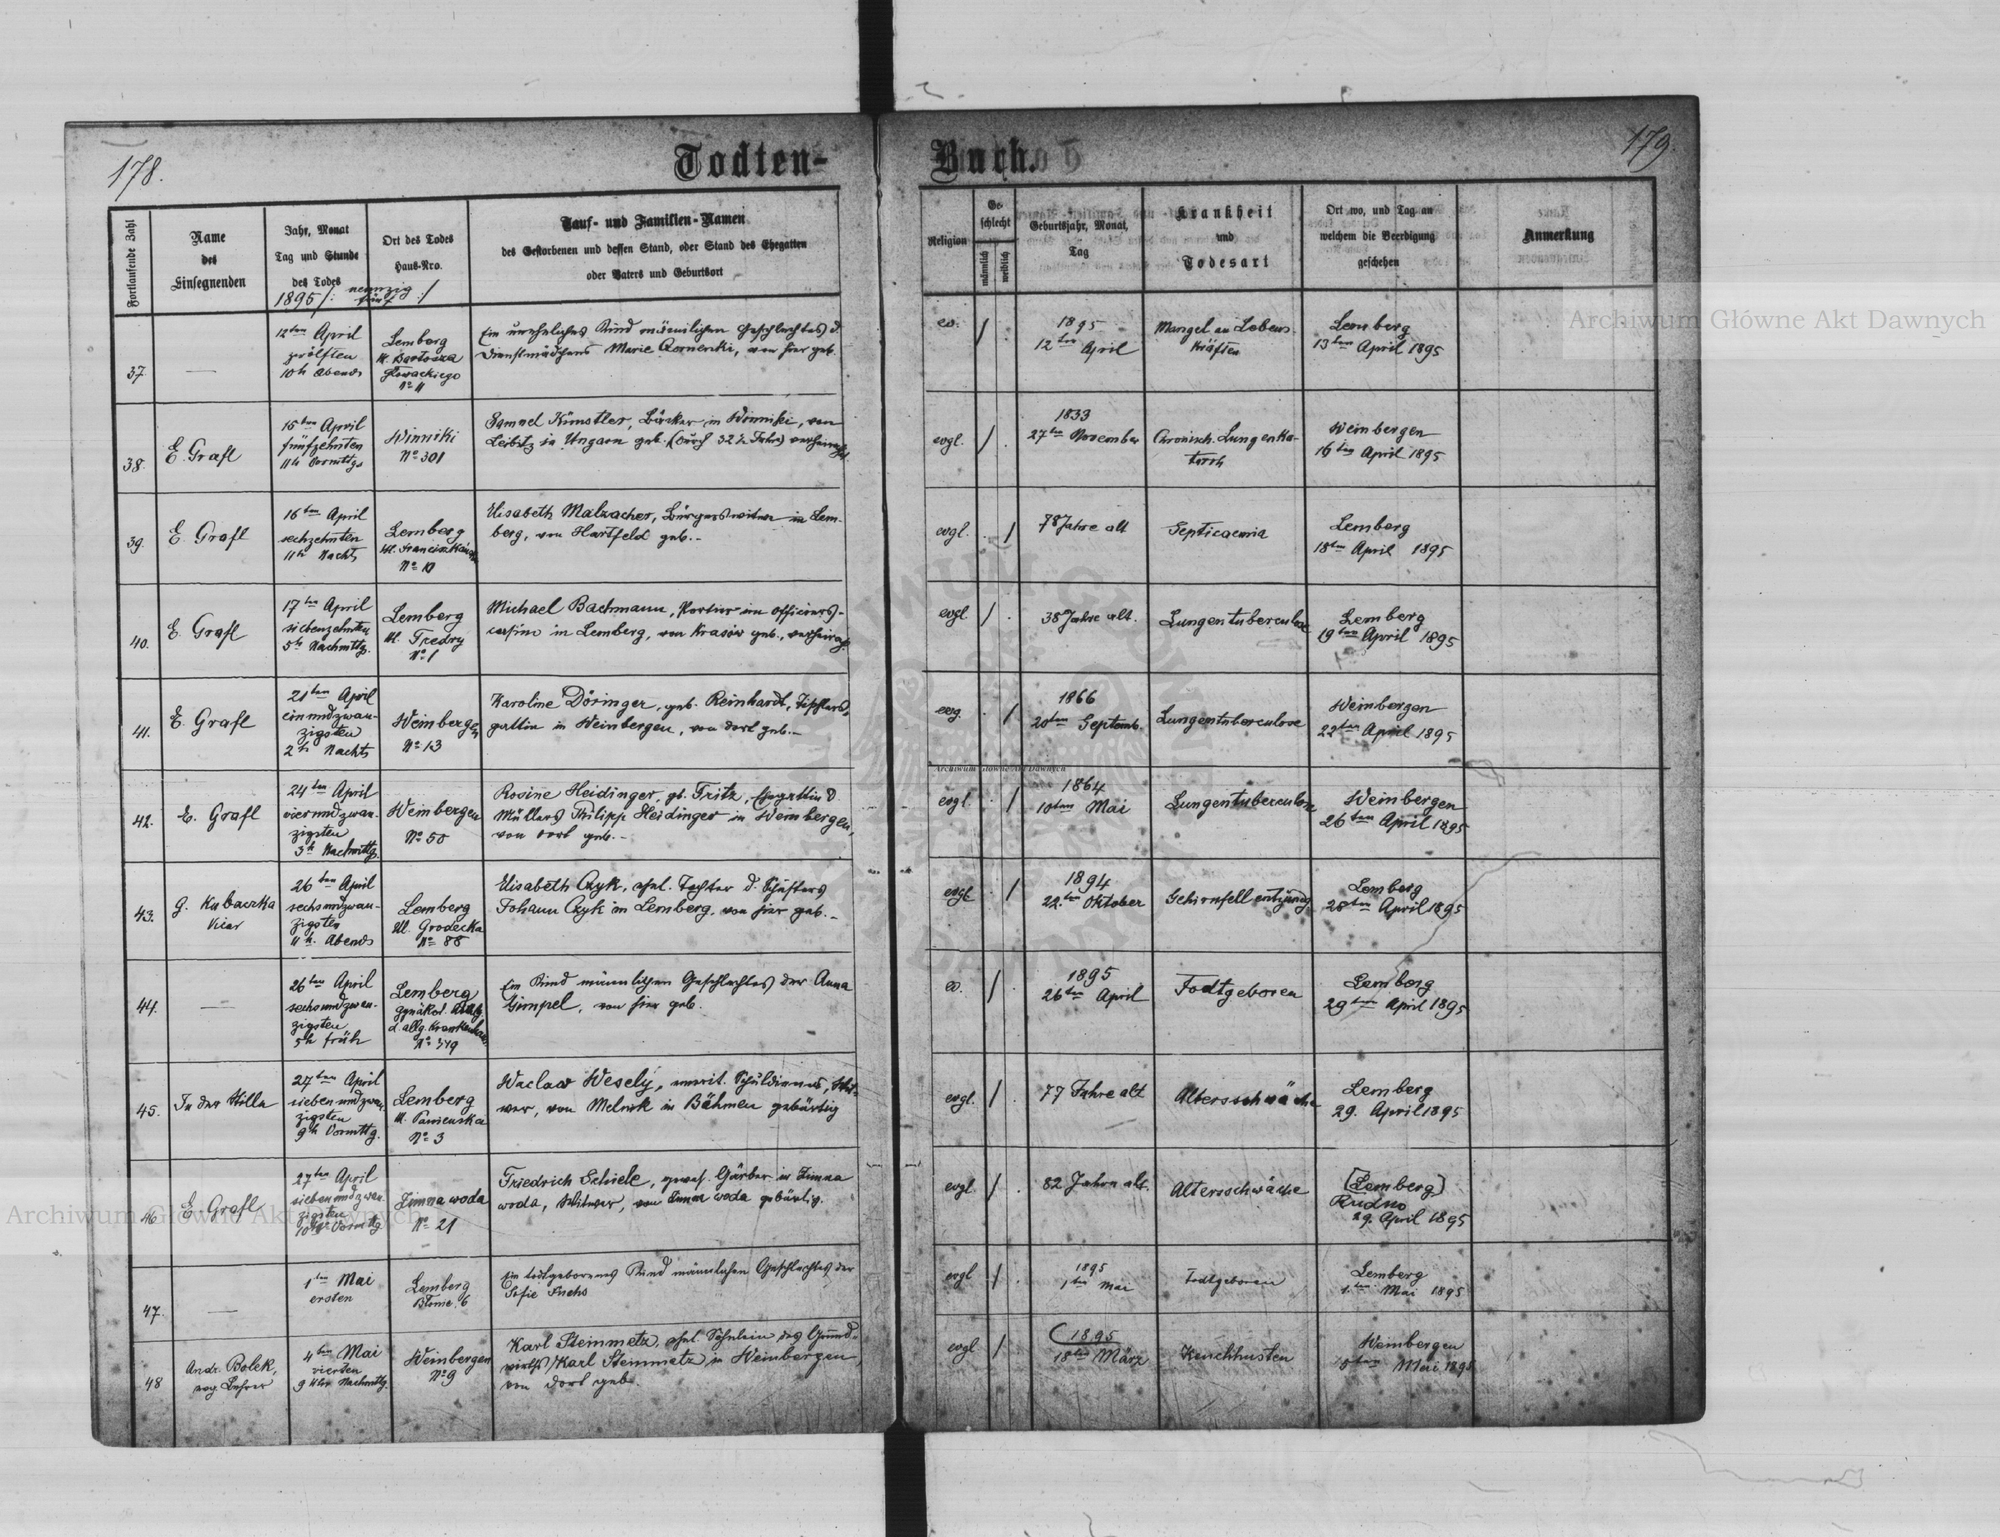 178.
Todten-
Buch.
179.
Fortlaufende Zahl
Name
des
Einsegnenden
Jahr, Monat
Tag und Stunde
des Todes
1895 /: neunzig
fünf :/
Ort des Todes
Haus-Nro.
Tauf- und Familien-Namen
des Gestorbenen und dessen Stand, oder Stand des Ehegatten
oder Vaters und Geburtsort
Religion
Ge-
schlecht
männlich
weiblich
Geburtsjahr, Monat,
Tag
Krankheit
und
Todesart
Ort wo, und Tag an
welchem die Beerdigung
geschehen
Anmerkung
37.
12ten April
zwölften
10h Abends
Lemberg
Kl. Bartosza
Głowackiego
No 11
Ein uneheliches Kind männlichen Geschlechtes d.
Dienstmädchens Marie, von hier geb.
ev.
1895
12ten April
Mangel an Lebens-
kräften
Lemberg
13ten April 1895
38.
E. Grafl
15ten April
fünfzehnten
11h Vormittgs
Winniki
No 301
Samuel Künstler, Bäcker in Winniki, von
Leibitz in Ungarn geb. (durch 32½ Jahre) verheirathet.
evgl.
1833
27ten November
Chronisch. Lungenka-
tarrh
Weinbergen
16ten April 1895
39.
E. Grafl
16ten April
sechzehnten
11h Nachts
Lemberg
No 10
Elisabeth Malzacher, Bürgerswitwe in Lem-
berg, von Hartfeld geb.-
evgl.
78 Jahre alt
Septicaemia
Lemberg
18ten April 1895
40.
E. Grafl
17ten April
siebenzehnten
5h Nachmittg.
Lemberg
Ul. Fredry
No 1
Michael Bachmann, Portier im Officiers-
casino in Lemberg, von Krasów geb., verheirath.
evgl
38 Jahre alt.
Lungentuberculose
Lemberg
19ten April 1895
41.
E. Grafl
21ten April
einundzwan-
zigsten
2h Nachts
Weinbergen
No 13
Karoline Döringer, geb. Reinhardt, Tischlers-
gattin in Weinbergen, von dort geb.-
evg.
1866
20ten Septemb.
Lungentuberculose
Weinbergen
22ten April 1895
42.
E. Grafl
24ten April
vierundzwan-
zigsten
3h Nachmittg.
Weinbergen
No 50
Rosine Heidinger, gb. Fritz, Ehegattin d.
Müllers Philipp Heidinger in Weinbergen,
von dort geb.-
evgl
1864
10ten Mai
Lungentuberculose
Weinbergen
26ten April 1895
43.
G. Kubaczka
Vicar
26ten April
sechsundzwan-
zigsten
11h. Abends
Lemberg
Ul. Grodecka
No 88
Elisabeth Czyk, ehel. Tochter d. Schusters
Johann Czyk in Lemberg, von hier geb.-
evgl
1894
22.ten Oktober
Gehirnfellentzündg
Lemberg
28ten April 1895
44.
26ten April
sechsundzwan-
zigsten
5h früh
Lemberg
gynäkol. Abthlg
d. allg. Krankenhaus.
Ein Kind männlichen Geschlechtes der Anna
Gimpel, von hier geb.
ev.
1895
26ten April
Todtgeboren
Lemberg
29ten April 1895
45.
In der Stille
27ten April
siebenundzwan-
zigsten
9h Vormittg.
Lemberg
Ul. Panieńska
No 3
Waclaw Wesely, emerit. Schuldiener, Wit-
wer, von Melnik in Böhmen gebürtig
evgl.
77 Jahre alt
Altersschwäche
Lemberg
29. April 1895
46
E. Grafl
27ten April
siebenundzwan-
zigsten
Vormittg
Zimna woda
No 21
Friedrich Schiele, gewes. Gärber in Zimna
woda, Witwer, von Zimna woda gebürtig.
evgl.
82 Jahre alt.
Altersschwäche
[Lemberg]
Rudno
29. April 1895
47.
1ten Mai
ersten
Lemberg
Ein todtgeborenes Kind männlichen Geschlechtes der
Sofie Fuchs
evgl
1895
1ten Mai
Todtgeboren
Lemberg
1.ten Mai 1895
48
Andr. Bolek,
evg. Lehrer
4ten Mai
vierten
9 Uhr Nachmittg.
Weinbergen
No 9
Karl Steinmetz, ehel. Söhnlein des Grund-
wirths Karl Steinmetz in Weinbergen,
von dort geb.
evgl
1895
18ten März
Keuchhusten
Weinbergen
Mai 1895
Archiwum Główne Akt Dawnych
Archiwum Główne Akt Dawnych
Archiwum Główne Akt Dawnych